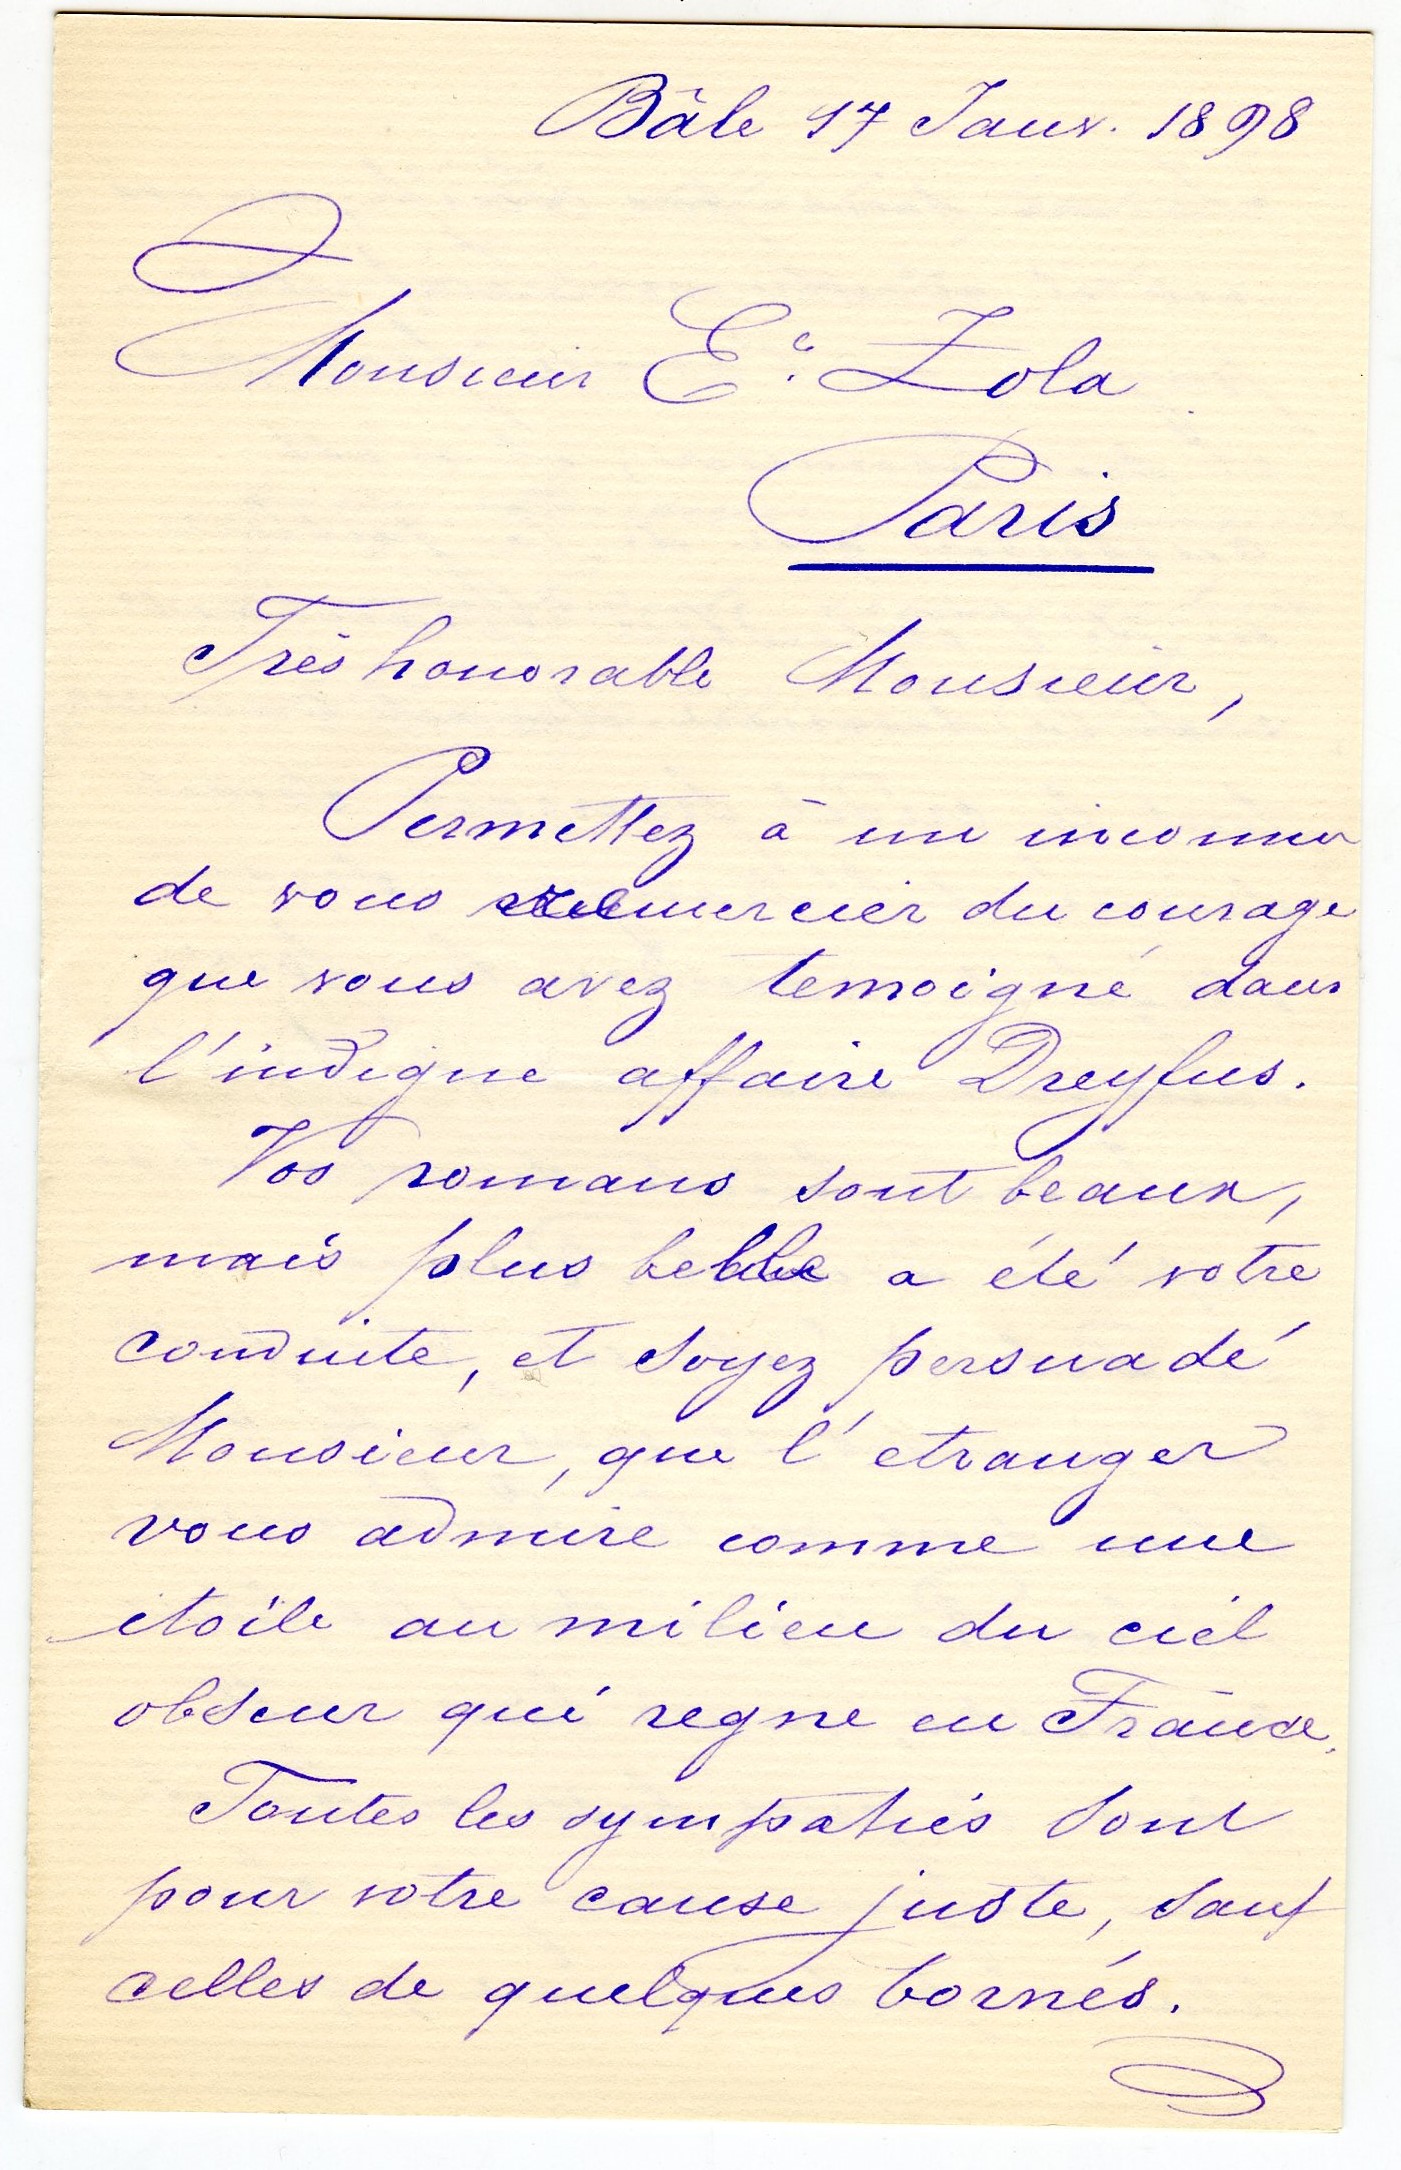 Bâle 17 Janv. 1898
Monsieur E. Zola
Paris
Très honorable Monsieur,
Permettez à un inconnu
de vous remercier du courage
que vous avez temoigné dans
l'indigne affaire Dreyfus.
Vos romans sont beaux,
mais plus belle a été votre
conduite, et soyez persuadé
Monsieur, que l'etranger
vous admire comme une
etoile au milieu du ciel
obscur qui regne en France.
Toutes les sympathies sont
pour votre cause juste, sauf
celles de quelques bornés.